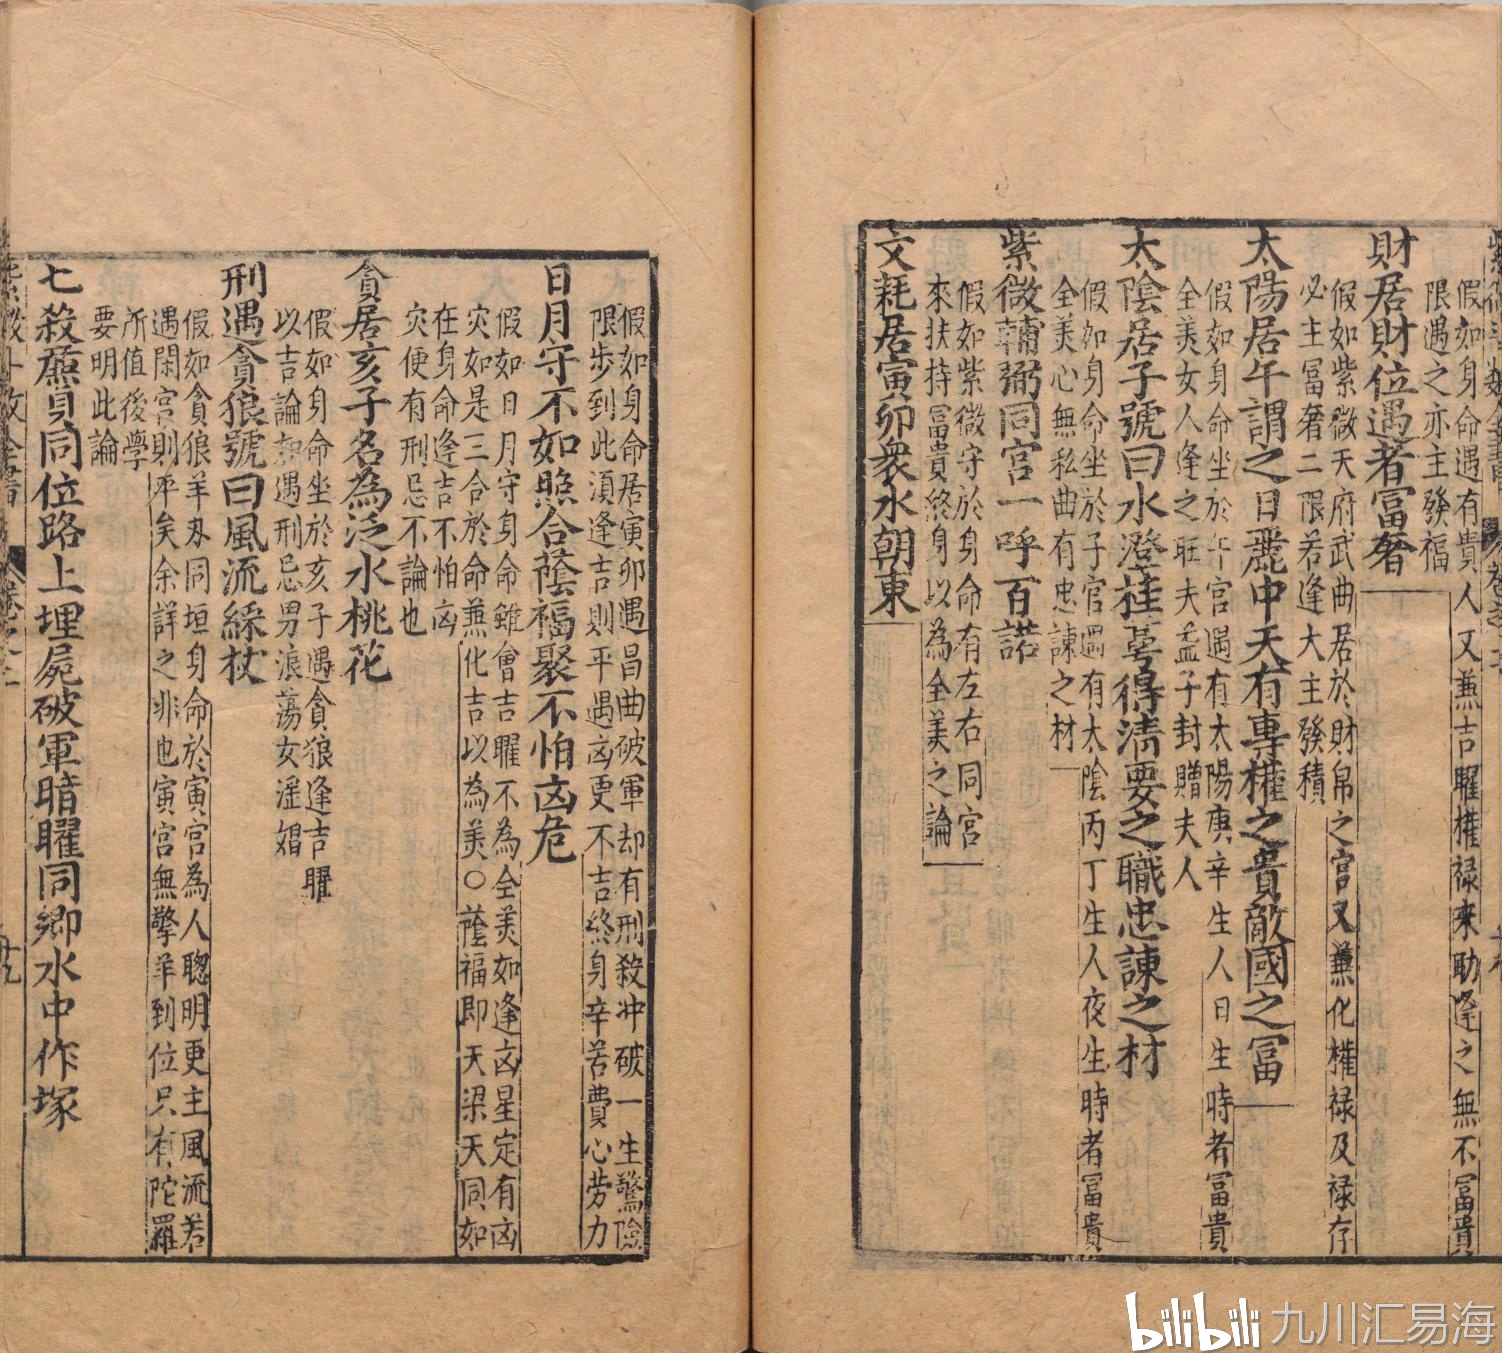 假如身命遇有貴人又兼吉曜權祿來助逢之無不冨貴
限遇之亦主發福
財居財位遇者富奢
假如紫微天府武曲居於財帛之宮又兼化權祿及祿存
必主冨奢二限若逢大主發積
太陽居午謂之日麗中天有專權之貴敵國之冨
假如身命坐於午宮遇有太陽庚辛生人日生時者冨貴
全美女人逢之旺夫孟子封贈夫人
太陰居子號曰水澄桂萼得清要之職忠諫之材
假如身命坐於子宮遇有太陰丙丁生人夜生時者冨貴
全美心無私曲有忠諫之材
紫微輔弼同宮一呼百諾
假如紫微守於身命有左右同宮
來扶持冨貴終身以為全美之論
文耗居寅卯衆水朝東
假如身命居寅卯遇昌曲破軍却有刑殺冲破一生驚險
限步到此湏逢吉則平遇凶更不吉終身辛苦費心勞力
日月守不如照合蔭福聚不怕凶危
假如日月守身命雖會吉曜不為全美如逢凶星定有凶
灾如是三合於命兼化吉以為美○蔭福即天梁天同如
在身命逢吉不怕凶
灾便有刑忌不論也
貪居亥子名為泛水桃花
假如身命坐於亥子遇貪狼逢吉曜
以吉論如遇刑忌男浪蕩女淫娼
刑遇貪狼號曰風流綵杖
假如貪狼羊刃同垣身命於寅宮為人聰明更主風流若
遇閑宮則平矣余詳之非也寅宮無擎羊到位只有陀羅
所值後學
要明此論
七殺廉貞同位路上埋屍破軍暗曜同鄉水中作塚